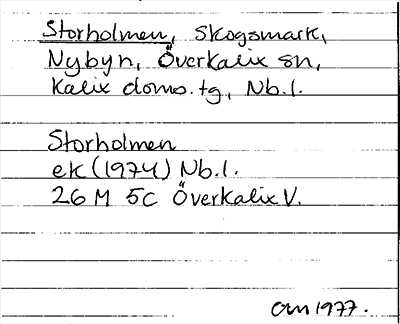 Storholmen, skogsmark,
Nybyn, Överkalix sn,
Kalix doms.tg, Nb.l.
Storholmen
ek (1974) Nb.l.
26 M 5c Överkalix V.
1977.